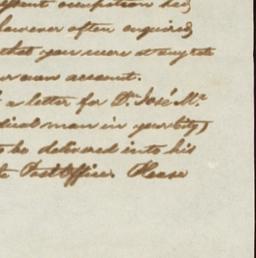 occupation has
however often enquired,
that you were at any rate
own account.
a letter for Dn. José Ma.
medical man in your City,
to be delivered into his
Post Office. Please